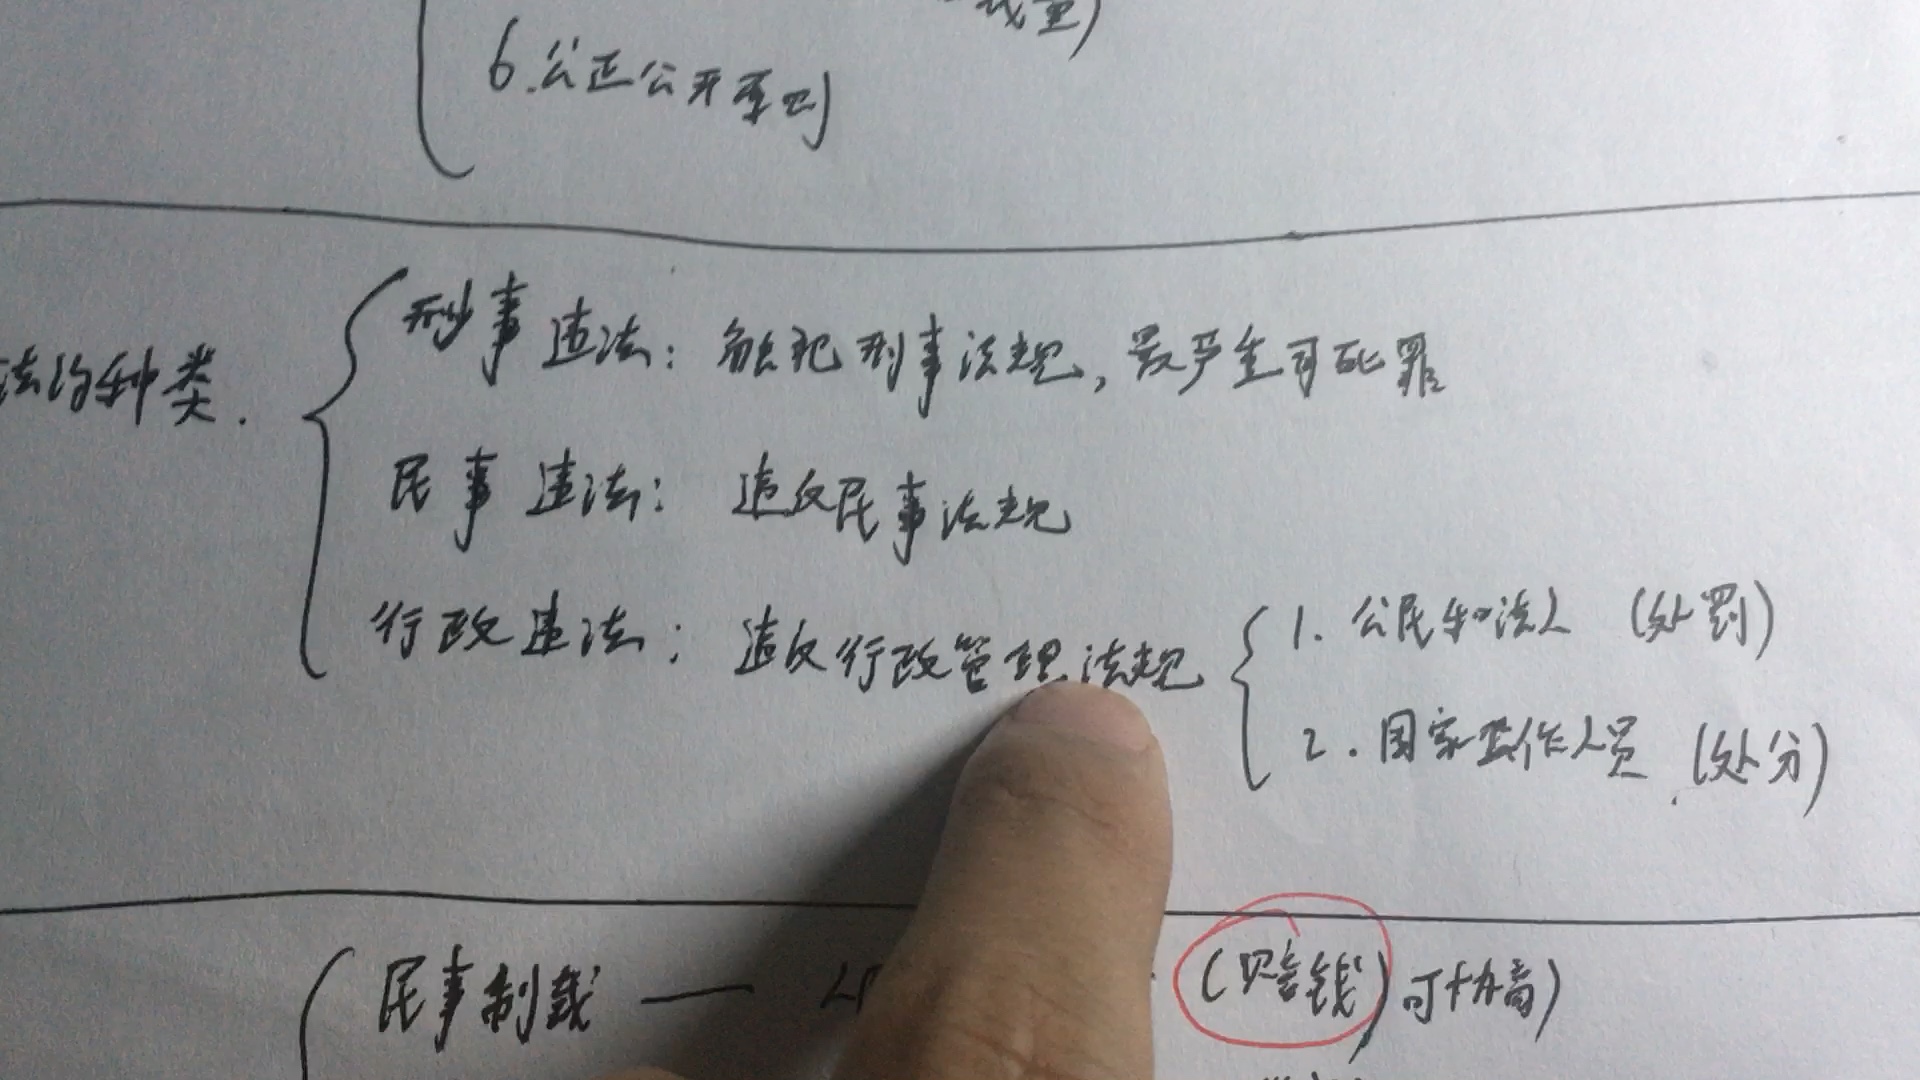 6.公正公开原则
法的种类.
刑事违法：触犯刑事法规，最严重可死罪
民事违法：违反民事法规
行政违法：违反行政管理法规
1.公民和法人（处罚）
2.国家工作人员（处分）
民事制裁——
（赔钱）可协商）